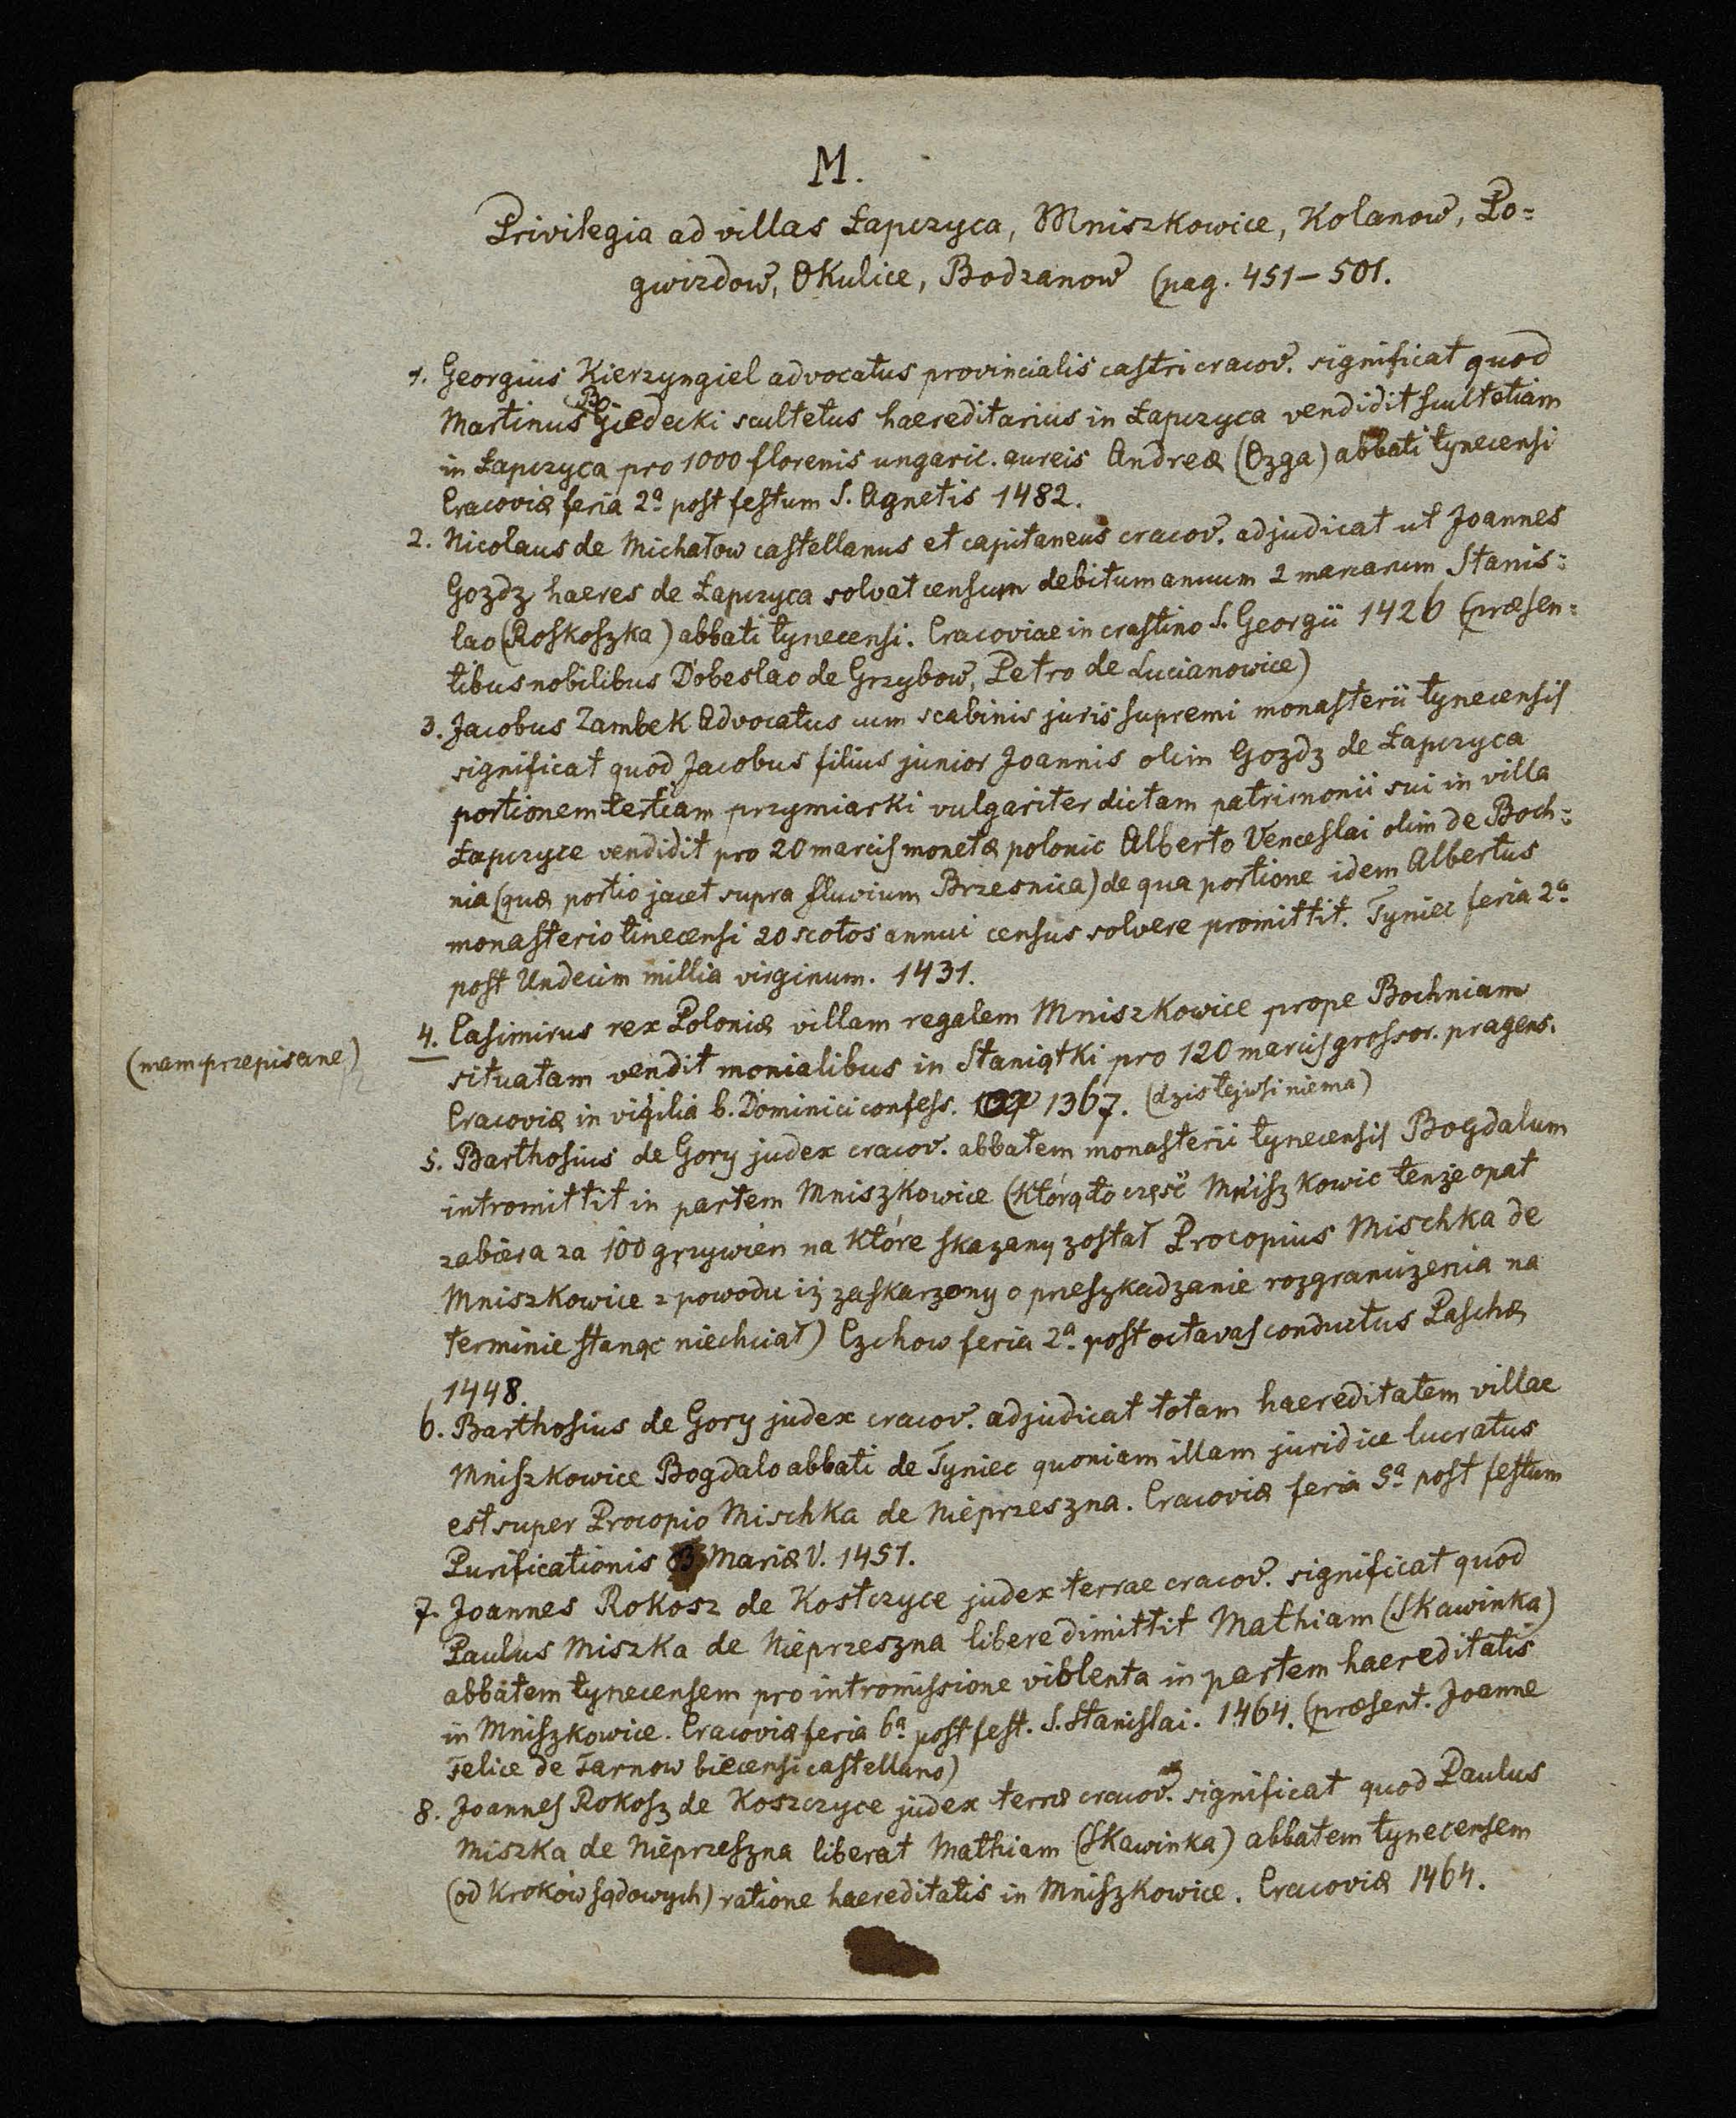 M.
Privilegia ad villas Łapczyca, Mniszkowice, Kolanow, Po=
gwizdow, Okulice, Bodzanow (pag. 451–501.
1. Georgius Kierzyngiel advocatus provincialis castri cracov. significat quod
Martinus scultetus haereditarius in Łapczyca vendidit scultetiam
in Łapczyca pro 1000 florenis ungaric. aureis Andreæ (Ozga) abbati tynecensi
Cracoviæ feria 2ª post festum S. Agnetis 1482.
2. Nicolaus de Michałow castellanus et capitaneus cracov. adjudicat ut Joannes
Gozdz haeres de Łapczyca solvat censum debitum annuum 2 marcarum Stanis=
lao (Roskoszka) abbati tynecensi. Cracoviae in crastino S. Georgii 1426 (præsen=
tibus nobilibus Dobeslao de Grzybow, Petro de Lucianowice)
3. Jacobus Zambek Advocatus cum scabinis juris supremi monasterii tynecensis
significat quod Jacobus filius junior Joannis olim Gozdz de Łapczyca
portionem tertiam przymiarki vulgariter dictam patrimonii sui in villa
Łapczyce vendidit pro 20 marcis monetæ polonic Alberto Venceslai olim de Boch=
nia (quæ portio jacet supra fluvium Brzesnica) de qua portione idem Albertus
monasterio tinecensi 20 scotos annui census solvere promittit. Tyniec feria 2ª
post Undecim millia virginum. 1431.
4. Casimirus rex Poloniæ villam regalem Mniszkowice prope Bochniam
(mam przepisane)
situatam vendit monialibus in Staniątki pro 120 marcis grossor. pragens.
Cracoviæ in vigilia b. Dominici confess. 1367. (dzis tej wsi niema)
5. Barthosius de Gory judex cracov. abbatem monasterii tynecensis Bogdalum
intromittit in partem Mniszkowice (którąto część Mniszkowic tenże opat
zabiera za 100 grzywien na które skazany został Procopius Mischka de
Mniszkowice z powodu iż zaskarzony o przeszkadzanie rozgraniczenia na
terminie stanąc niechciał) Czchow feria 2ª post octavas conductus Paschæ
1448.
6. Barthosius de Gory judex cracov. adjudicat totam haereditatem villae
Mniszkowice Bogdalo abbati de Tyniec quoniam illam juridice lucratus
est super Procopio Mischka de Nieprzeszna. Cracoviæ feria 5ª post festum
Purificationis B Mariæ V. 1451.
7. Joannes Rokosz de Kostczyce judex terrae cracov. significat quod
Paulus Miszka de Nieprzeszna libere dimittit Mathiam (Skawinka)
abbatem tynecensem pro intromissione violenta in partem haereditatis
in Mniszkowice. Cracoviæ feria 6ª post fest. S. Stanislai. 1464. (præsent. Joanne
Felice de Tarnow biecensi castellano)
8. Joannes Rokosz de Koszczyce judex terræ cracov. significat quod Paulus
Miszka de Nieprzeszna liberat Mathiam (Skawinka) abbatem tynecensem
(od kroków sądowych) ratione haereditatis in Mniszkowice. Cracoviæ 1464.